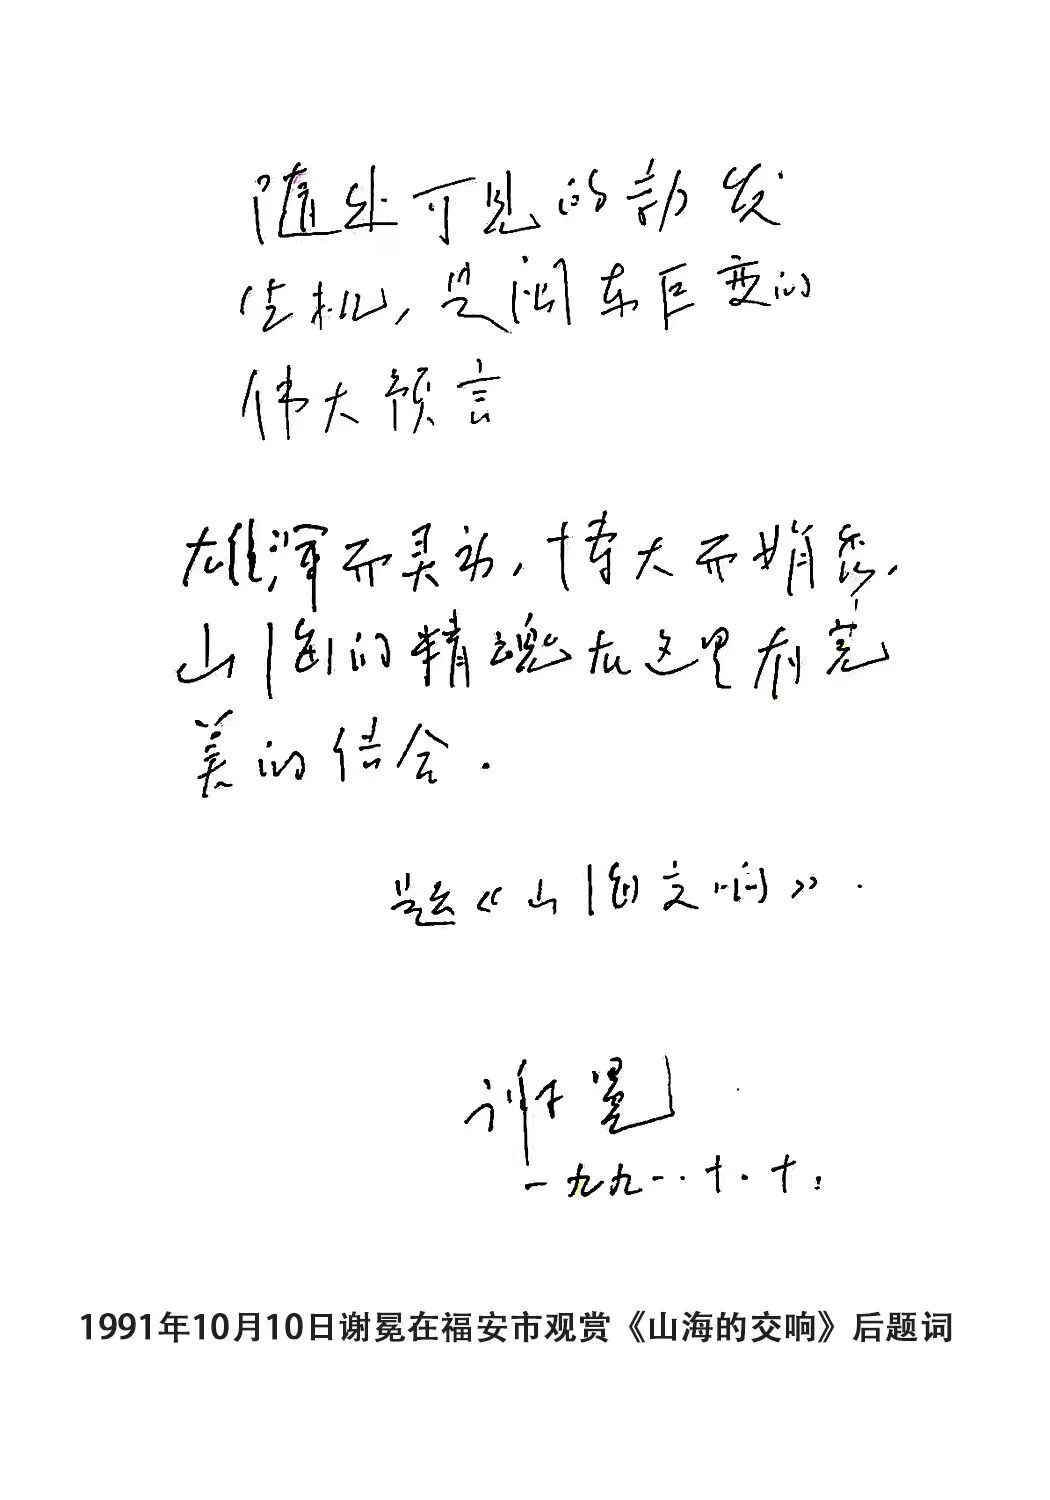 随处可见的勃发
生机,是闽东巨变的
伟大预言
雄浑而灵动,博大而娟秀,
山海的精魂在这里有完
美的结合.
题《山海交响》.
谢冕
一九九一.十.十.
1991年10月10日谢冕在福安市观赏《山海的交响》后题词